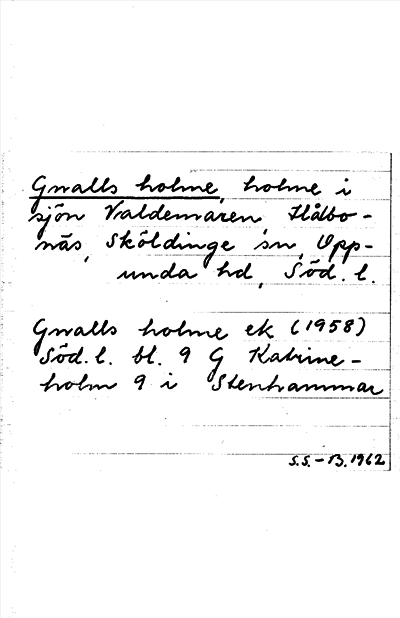 Gnralls holme, holme i
sjön Valdemaren, Hålbo-
näs, Sköldinge sn, Opp-
unda hd, Söd. l.
Gnralls holme ek (1958)
Söd. l. bl. 9 G Katrine-
holm 9 i Stenhammar
S.S.-B. 1962